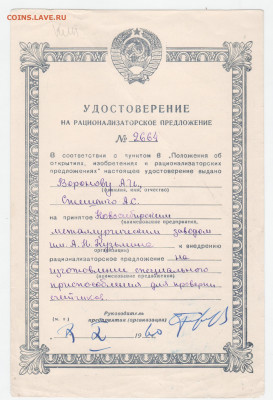 COINS.LAVE.RU
УДОСТОВЕРЕНИЕ
НА РАЦИОНАЛИЗАТОРСКОЕ ПРЕДЛОЖЕНИЕ
№ 2664
В соответствии с пунктом 8 „Положения об
открытиях, изобретениях и рационализаторских
предложениях“ настоящее удостоверение выдано
Воронову А.И.
(фамилия, имя, отчество)
на принятое Новосибирским
(наименование предприятия,
металлургическим заводом
им. А.Н. Кузьмина к внедрению
организации)
рационализаторское предложение на
изготовление специального
(наименование предложения)
приспособления для проверки
счетчиков.
Руководитель
предприятия (организации)
(м. п.)
X 1960